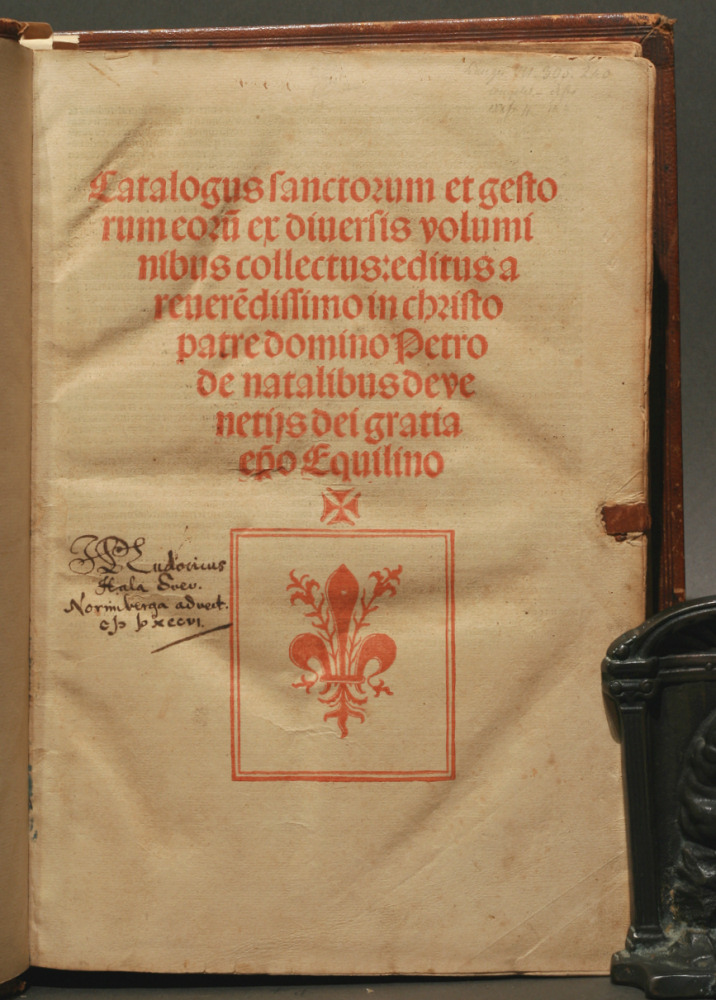 Catalogus sanctorum et gesto
rum eorũ ex diuersis volumi
nibus collectus: editus a
reuerẽdissimo in christo
patre domino Petro
de natalibus de ve
netijs dei gratia
ep̃o Equilino
Ludovicus
Hala Suev.
Norimberga advect.